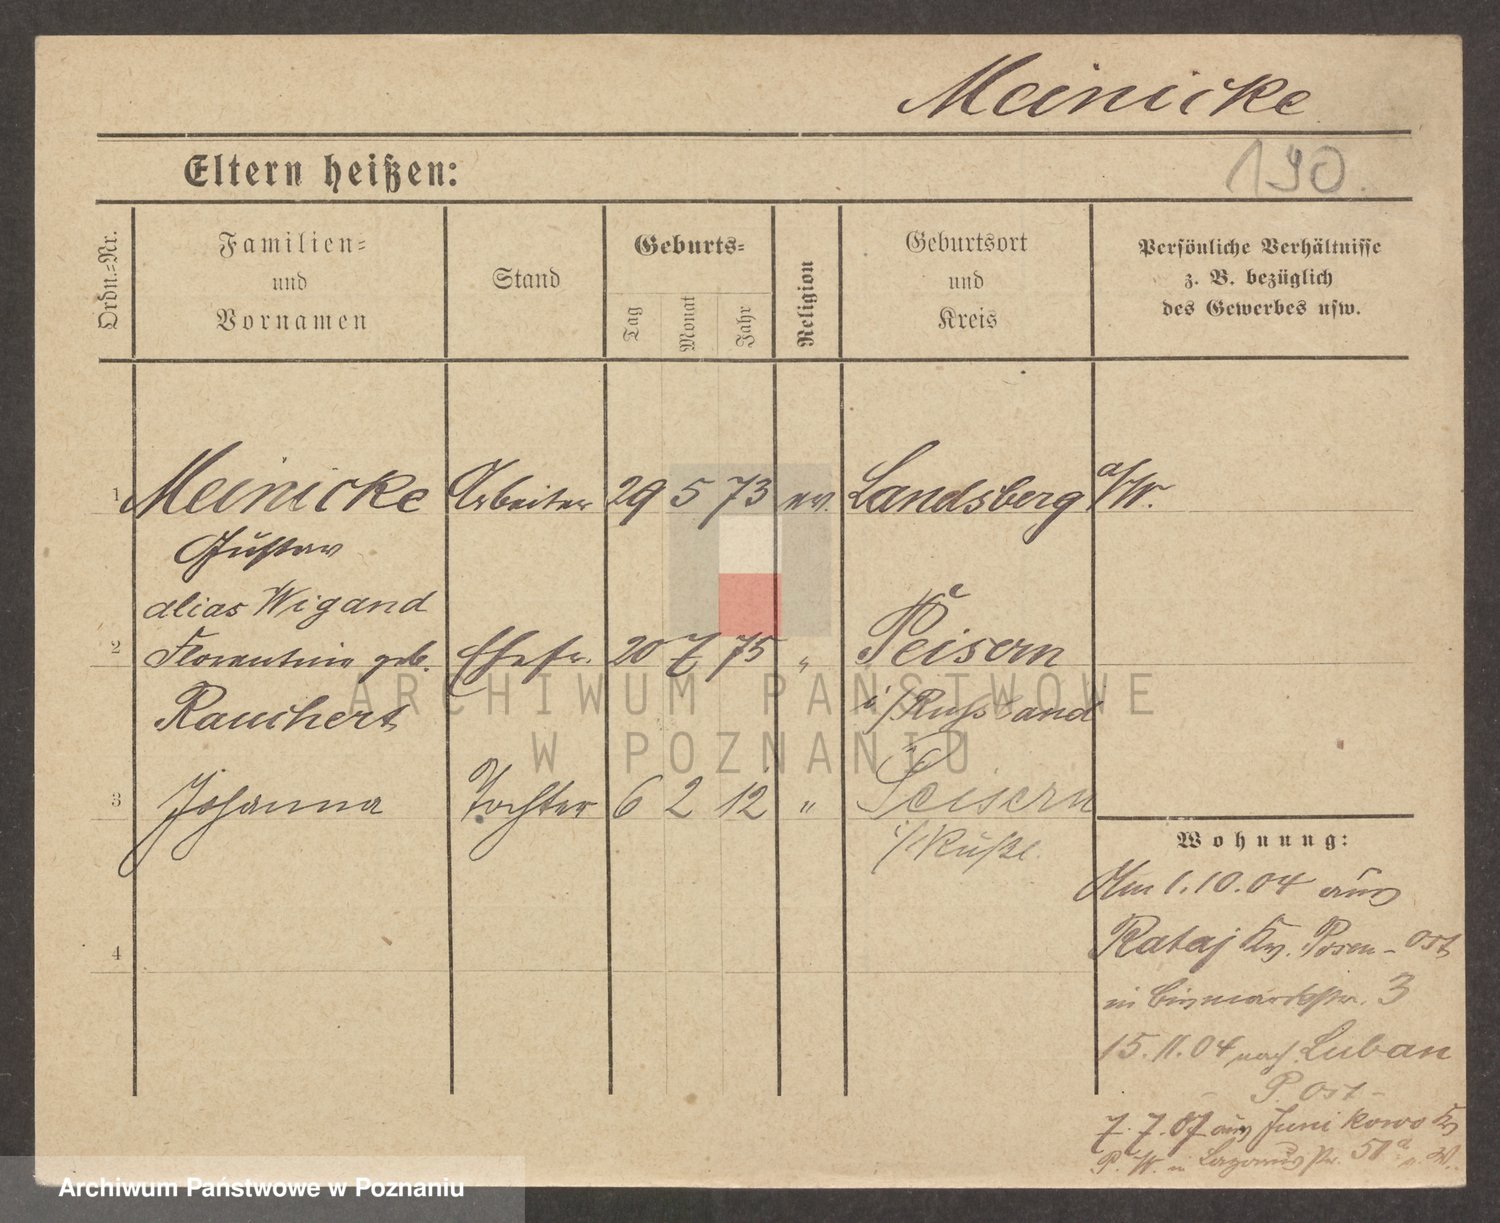 Meinicke
Eltern heißen:
190.
Ordn.=Nr.
Familien=
und
Vornamen
Stand
Geburts=
Tag
Monat
Jahr
Religion
Geburtsort
und
Kreis
Persönliche Verhältnisse
z. B. bezüglich
des Gewerbes usw.
1 Meinicke Arbeiter 29 5 73 ev. Landsberg a/W.
Gustav
alias Wigand
2 Florentine geb. Ehefr. 20 7 75 " Peisern
Rauchert i/Russland
3 Johanna Tochter 6 2 12 " Peisern
i/Rußl.
Wohnung:
Am 1.10.04 aus
Rataj Kr. Posen-Ost
in Bismarckstr. 3
4
15.11.04 nach Luban
P. Ost
7.7.07 aus Junikowo Kr
P. W. in Lazarusstr. 50a
ARCHIWUM PAŃSTWOWE
W POZNANIU
Archiwum Państwowe w Poznaniu